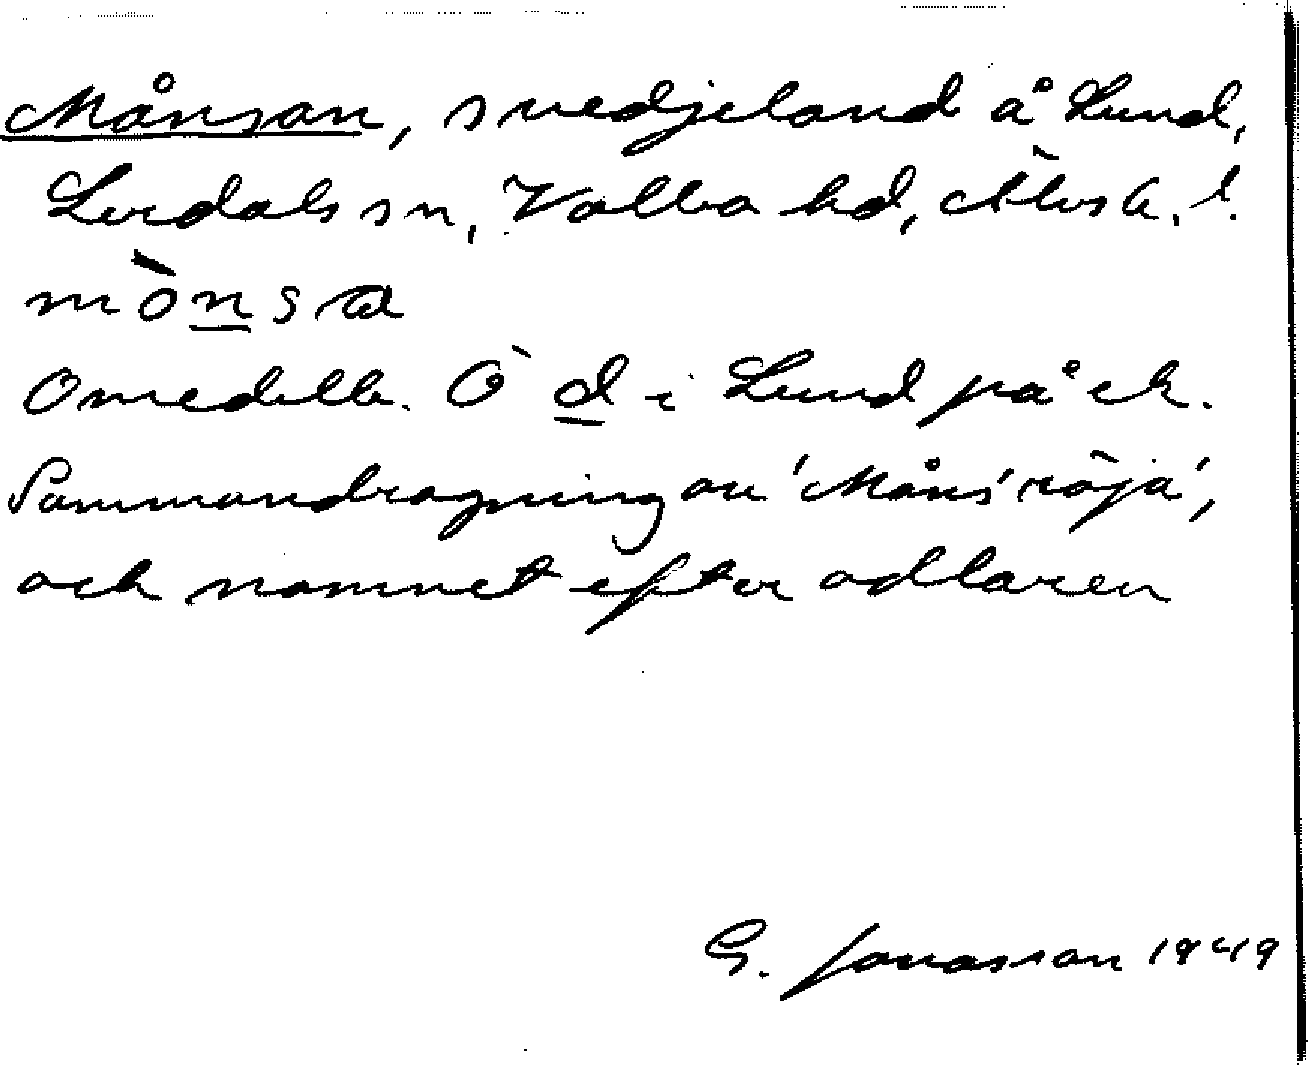 Månsan, svedjeland å Lund,
Lerdals sn, Valbo hd, Älvsb. l.
mò̀nsa
Omedelb. Ö d i Lund på ek.
Sammandragning av 'Måns' röja',
och namnet efter odlaren
G. Jonasson 1949